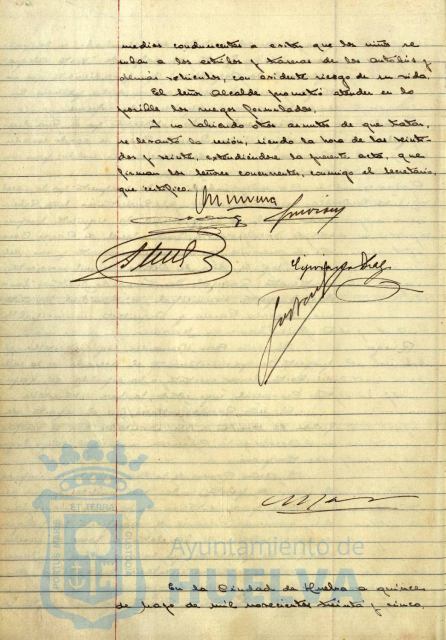 medios conducentes a evitar que los niños se
suban a los estribos y traseras de los autobús y
demás vehículos, con evidente riesgo de su vida.
El Señor Alcalde prometió atender en lo
posible los ruegos formulados.
Y no habiendo otros asuntos de que tratar,
se levantó la sesión, siendo la hora de las veinti-
dos y veinte, extendiéndose la presente acta, que
firman los señores concurrentes, conmigo el Secretario,
que certifico.
PORTUS MARIS
ET TERRAE
CUSTODIA
Ayuntamiento de
HUELVA
En la Ciudad de Huelva a quince
de mayo de mil novecientos treinta y cinco,